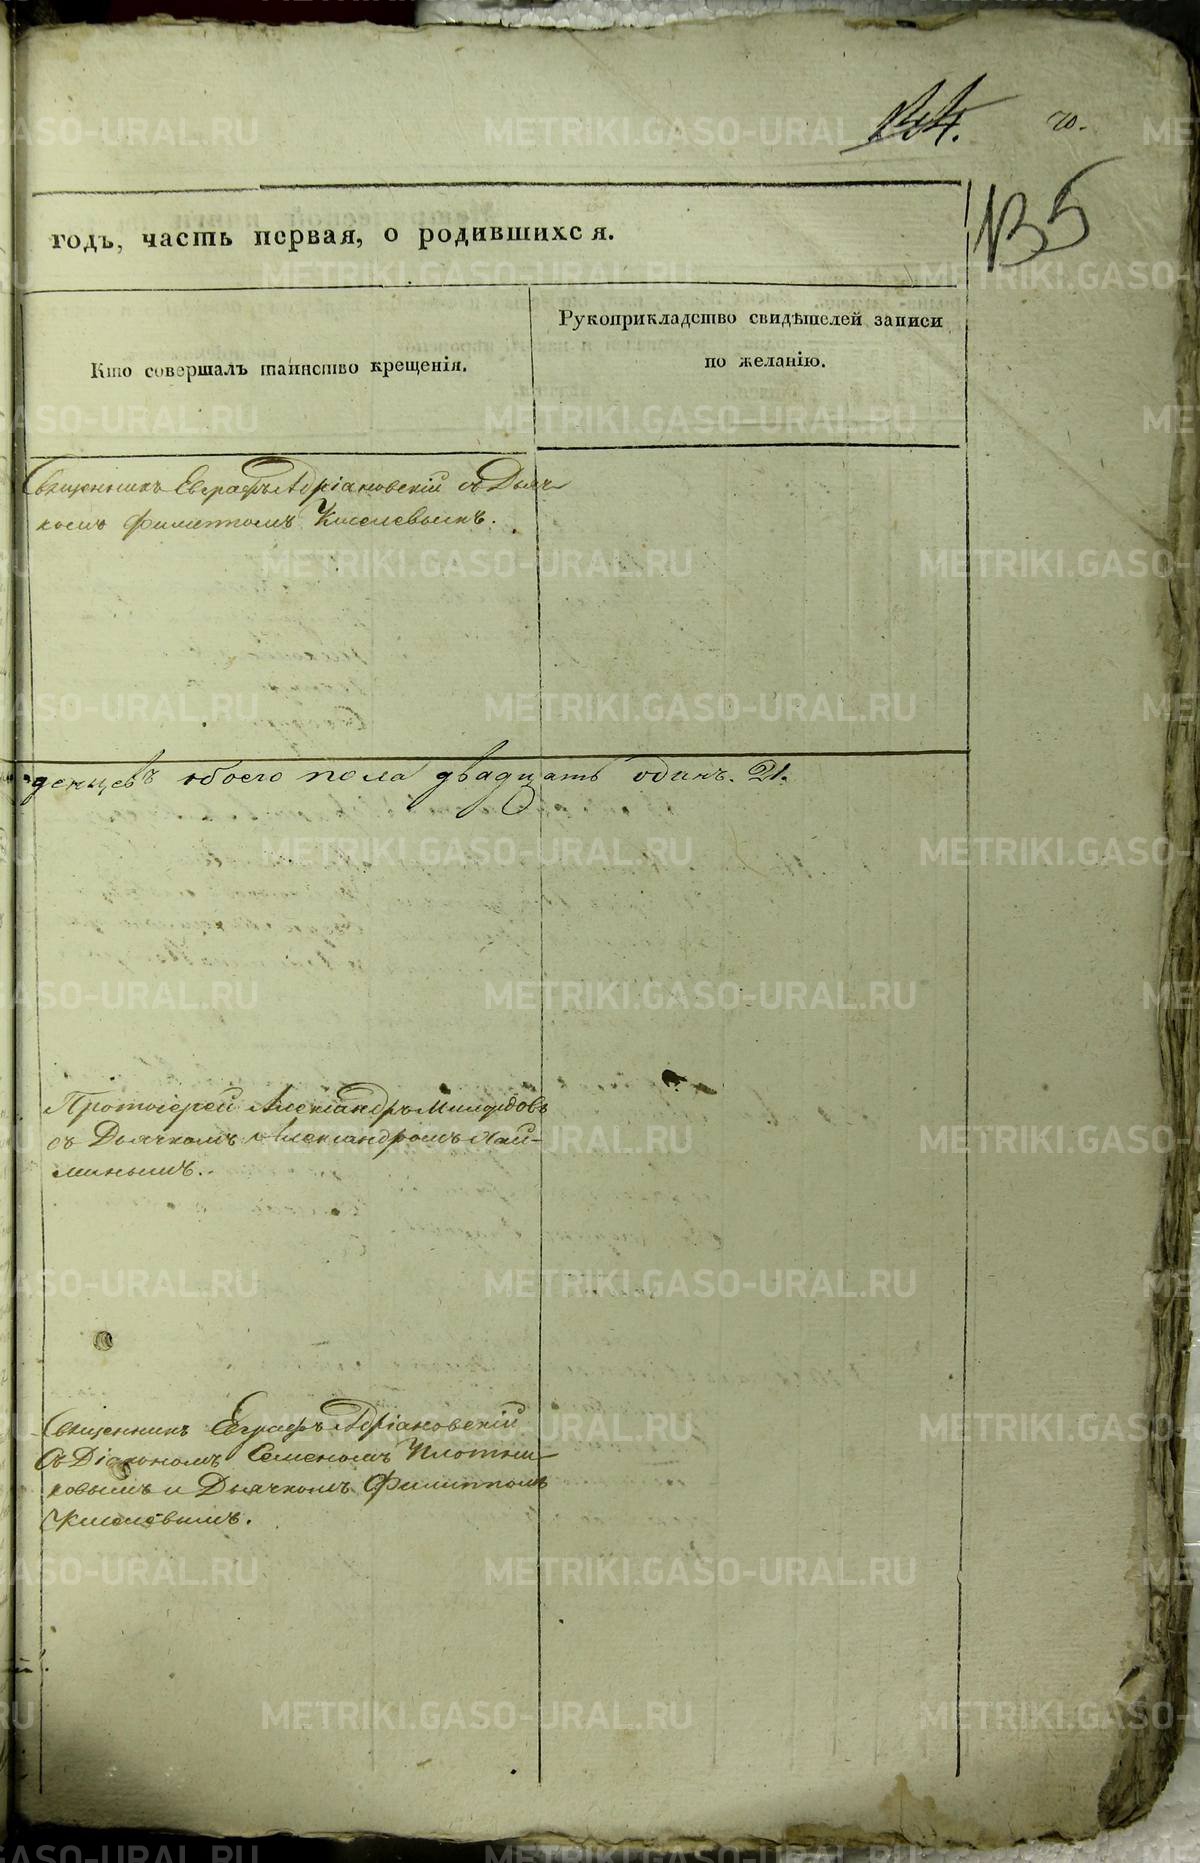 144.
20.
135
годъ, часть первая, о родившихся.
Кто совершалъ таинство крещенія.
Рукоприкладство свидѣтелей записи
по желанію.
Священникъ Евграфъ Адріановскій съ Дьяч-
комъ Филиппомъ Киселевымъ.
денцевъ обоего пола двадцать одинъ. 21.
Протоіерей Александръ Милордовъ
съ Дьячкомъ Александромъ Хай-
минымъ.
Священникъ Евграфъ Адріановскій
съ Діакономъ Семеномъ Плотни-
ковымъ и Дьячкомъ Филиппомъ
Киселевымъ.
METRIKI.GASO-URAL.RU